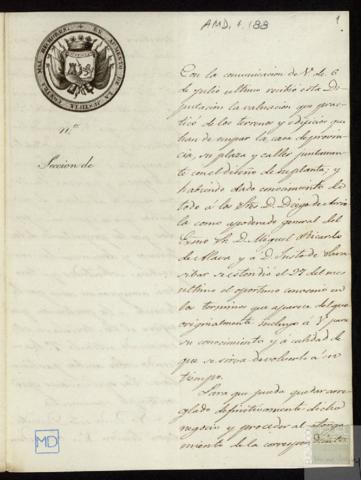 AMD, 4, 188
1
EN AUMENTO DE LA JUSTICIA CONTRA MALHECHORES
n.º
Seccion de
Con la comunicacion de V. de 6
de julio ultimo recibió esta Di-
putacion la valuacion que prac-
ticó de los terrenos y edificios que
han de ocupar la casa de provin-
cia, su plaza y calles juntamen-
te con el diseño de su planta; y
habiendo dado conocimiento de
todo á los Sres. D. Diego de Arrio-
la como apoderado general del
Exmo Sr. D. Miguel Ricardo
de Alava y a D. Justo de
se estendió el 27 del mes
ultimo el oportuno convenio en
los terminos que aparece del que
originalmente incluyo á V. para
su conocimiento y á calidad de
que se sirva devolverlo a su
tiempo.
Para que pueda quedar arre-
glado definitivamente dicho
negocio y proceder al otorga-
miento de la correspondiente
MD